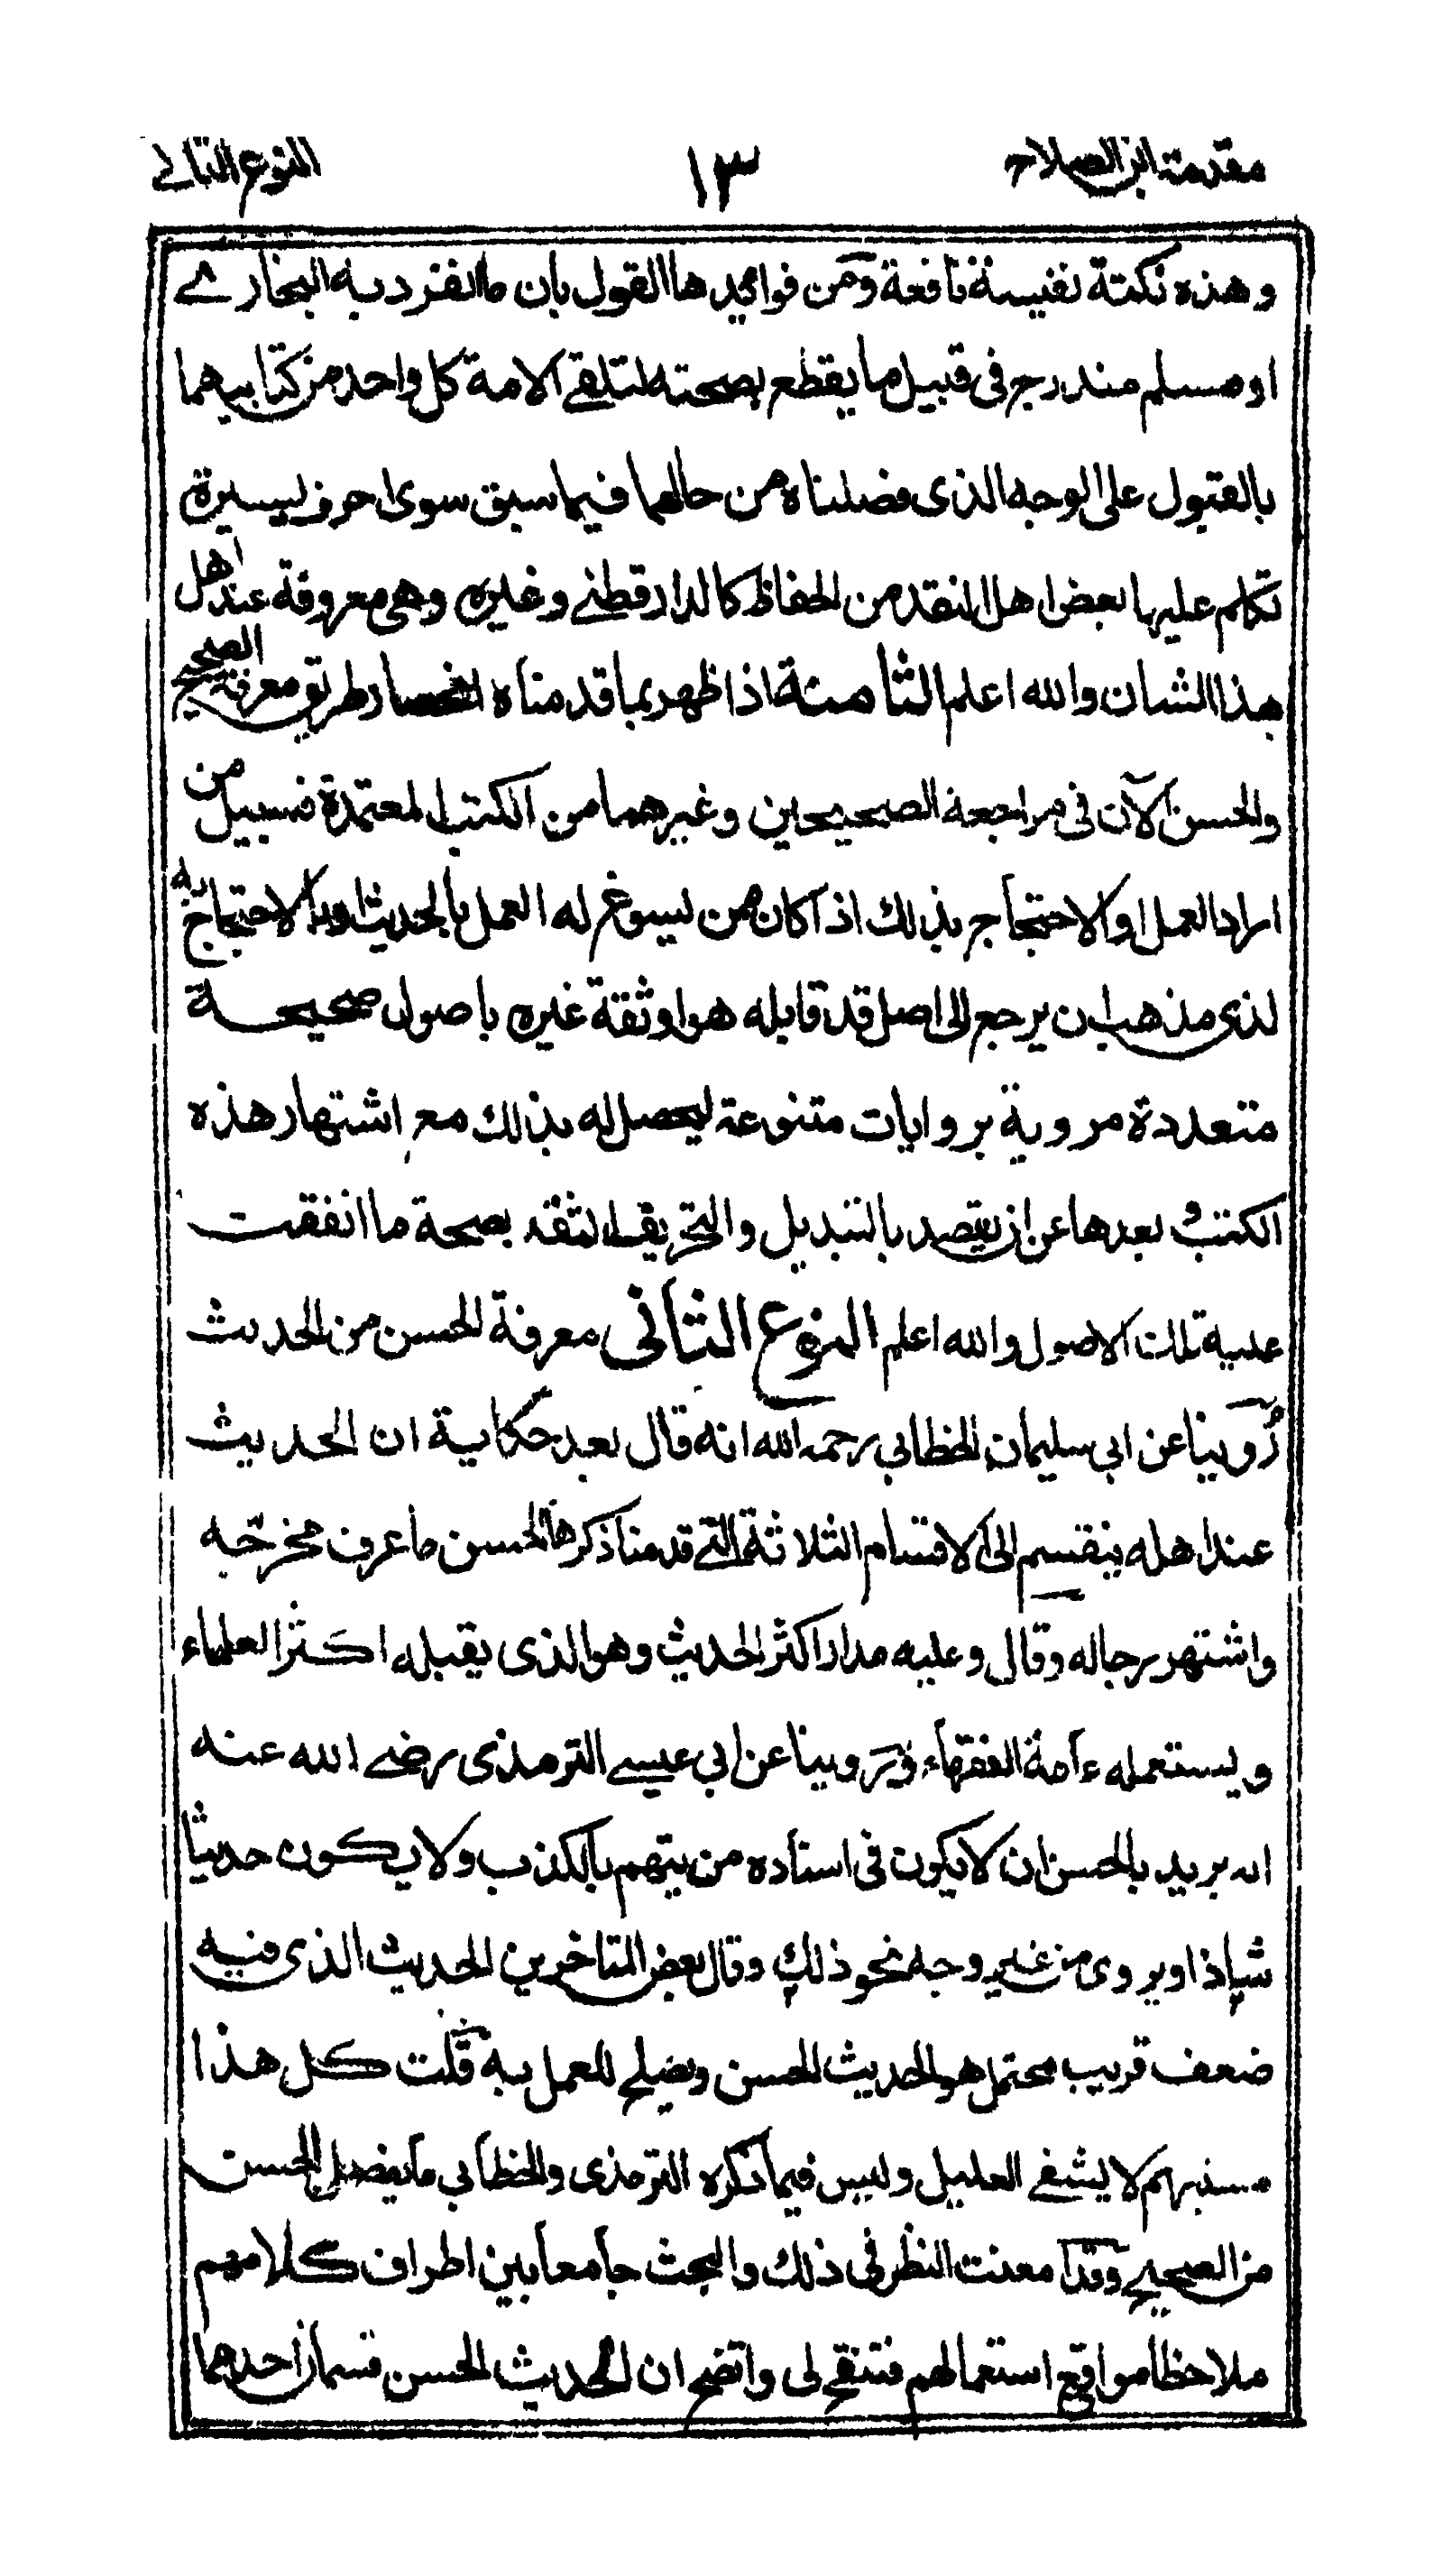 مقدمة ابن الصلاح
١٣
النوع الثاني
وهذه نكتة نفيسة نافعة ومن فوائدها القول بان ما انفرد به البخاري
او مسلم مندرج في قبيل ما يقطع بصحته لتلقي الامة كل واحد من كتابيهما
بالقبول على الوجه الذي فصلناه من حالهما فيما سبق سوى احرف يسيرة
تكلم عليها بعض اهل النقد من الحفاظ كالدارقطني وغيره وهي معروفة عند اهل
هذا الشان والله اعلم الثامنة اذا ظهر بما قدمناه انحصار طريق معرفة الصحيح
والحسن الآن في مراجعة الصحيحين وغيرهما من الكتب المعتمدة فسبيل من
اراد العمل او الاحتجاج بذلك اذا كان ممن يسوغ له العمل بالحديث او الاحتجاج به
لذي مذهب ان يرجع الى اصل قد قابله هو او ثقة غيره باصول صحيحة
متعددة مروية بروايات متنوعة ليحصل له بذلك مع اشتهار هذه
الكتب وبعدها عن ان يقصد بالتبديل والتحريف الثقة بصحة ما اتفقت
عليه تلك الاصول والله اعلم النوع الثاني معرفة الحسن من الحديث
رُوينا عن ابي سليمان الخطابي رحمه الله انه قال بعد حكاية ان الحديث
عند اهله ينقسم الى الاقسام الثلاثة التي قدمنا ذكرها الحسن ما عرف مخرجه
واشتهر رجاله وقال وعليه مدار اكثر الحديث وهو الذي يقبله اكثر العلماء
ويستعمله عامة الفقهاء وروينا عن ابي عيسى الترمذي رضي الله عنه
انه يريد بالحسن ان لا يكون في اسناده من يتهم بالكذب ولا يكون حديثا
شاذا ويروى من غير وجه نحو ذلك وقال بعض المتاخرين الحديث الذي فيه
ضعف قريب محتمل هو الحديث الحسن ويصلح للعمل به قلت كل هذا
مستبهم لا يشفي العليل وليس فيما ذكره الترمذي والخطابي ما يفصل الحسن
من الصحيح وقد امعنت النظر في ذلك والبحث جامعا بين اطراف كلامهم
ملاحظا مواقع استعمالهم فتنقح لي واتضح ان الحديث الحسن قسمان احدهما